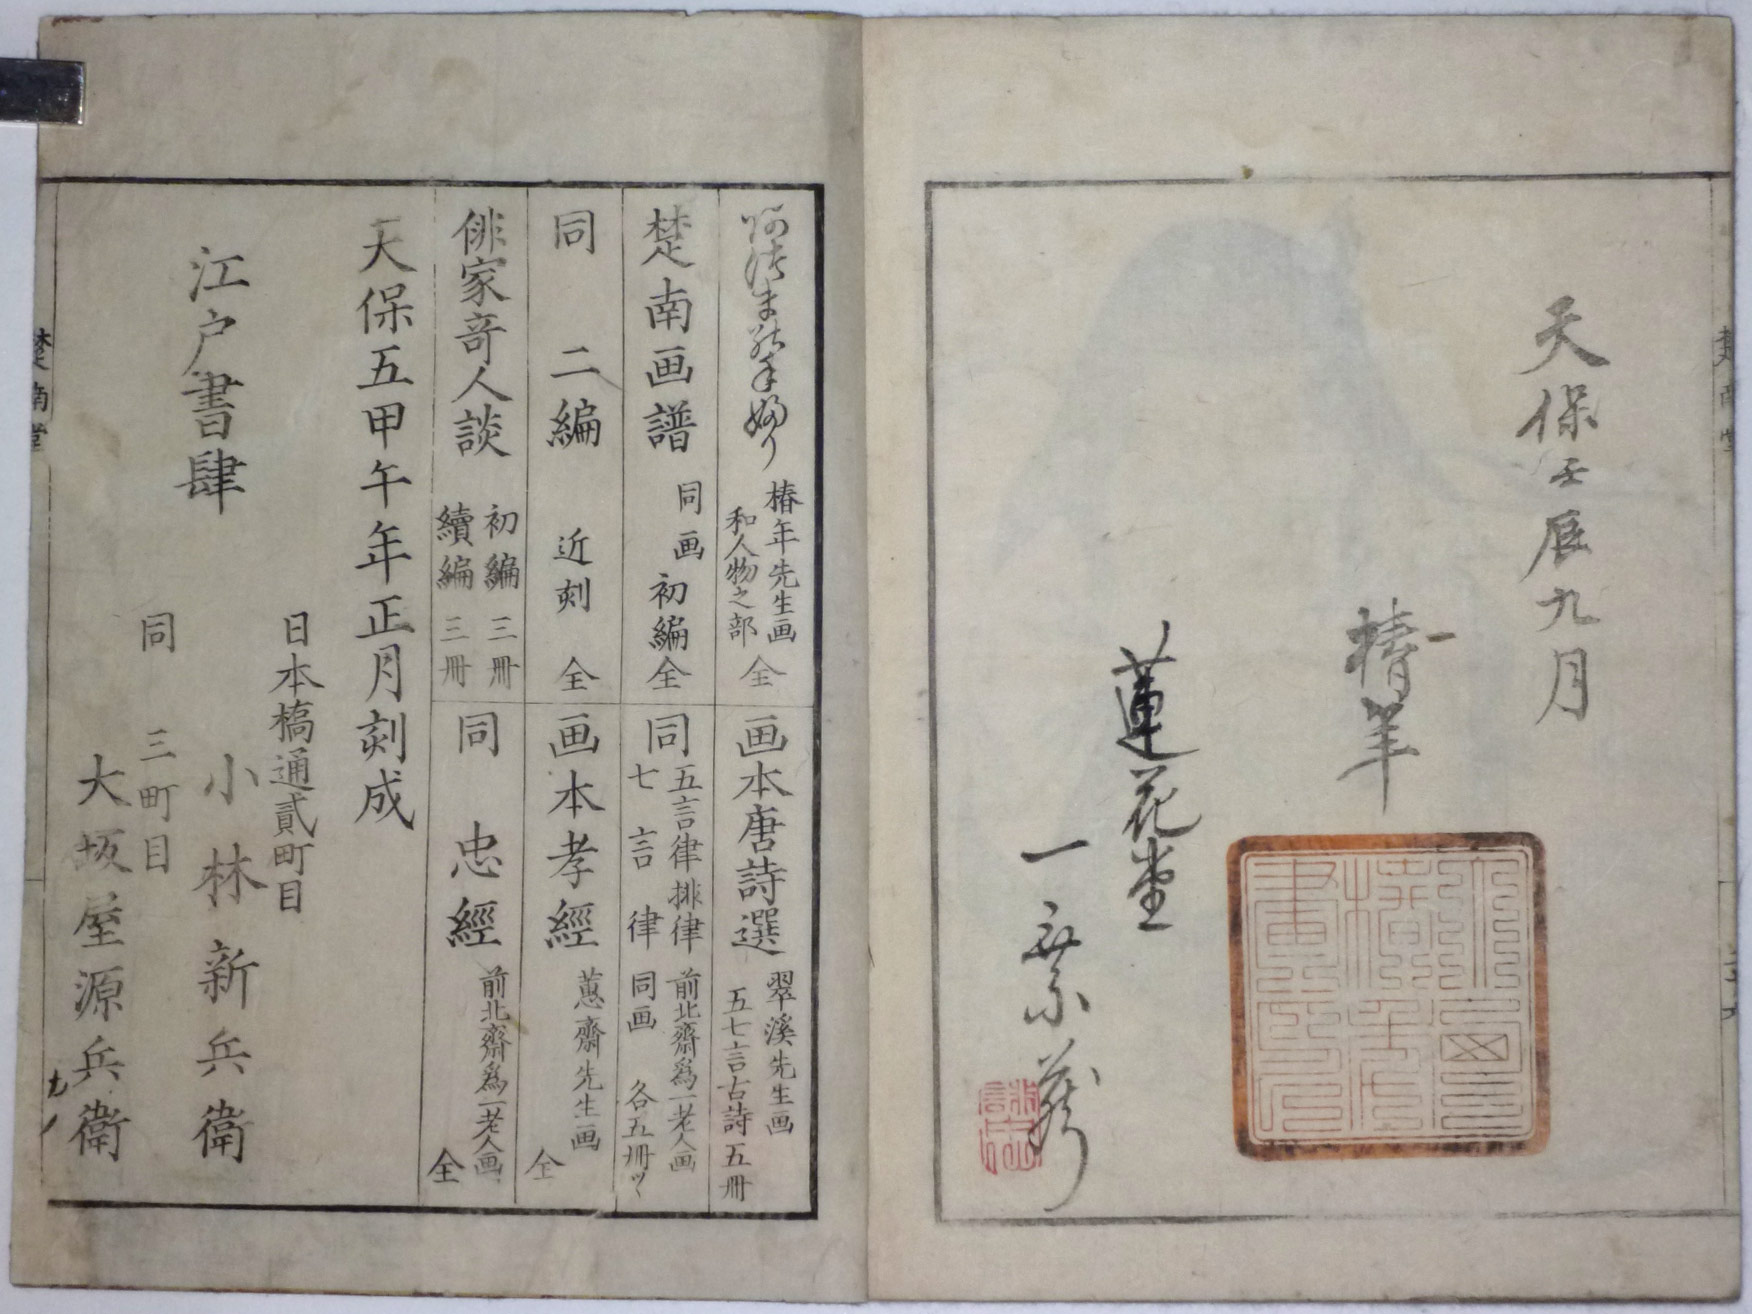 天保壬辰九月
椿年
蓮花堂
楚南画譜 同画 初編 全
同 二編 近刻 全
俳家奇人談 初編 三冊 續編 三冊
椿年先生画 和人物之部 全
画本唐詩選 翠溪先生画 五七言古詩 五冊
同 五言律排律 七言律 前北齋爲一老人画 同画 各五冊ツヽ
画本孝經 蕙齋先生画 全
同 忠經 前北齋爲一老人画 全
天保五甲午年正月刻成
江戸書肆
日本橋通貳町目
小林新兵衛
同 三町目
大坂屋源兵衛
楚南堂